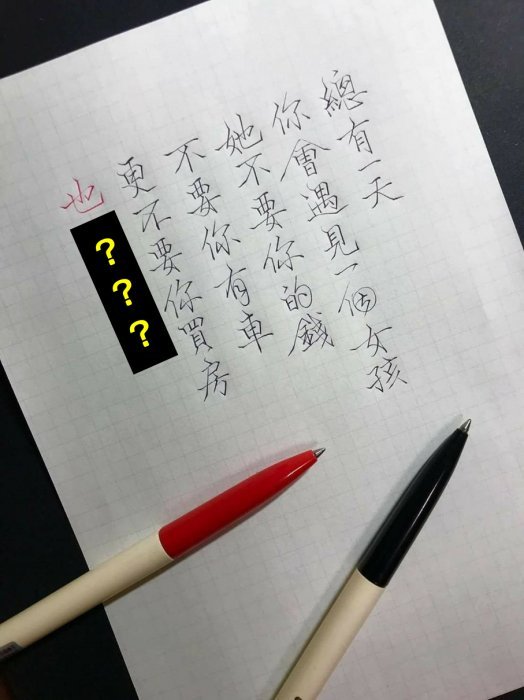 總有一天
你會遇見一個女孩
她不要你的錢
不要你有車
更不要你買房
也
？
？
？